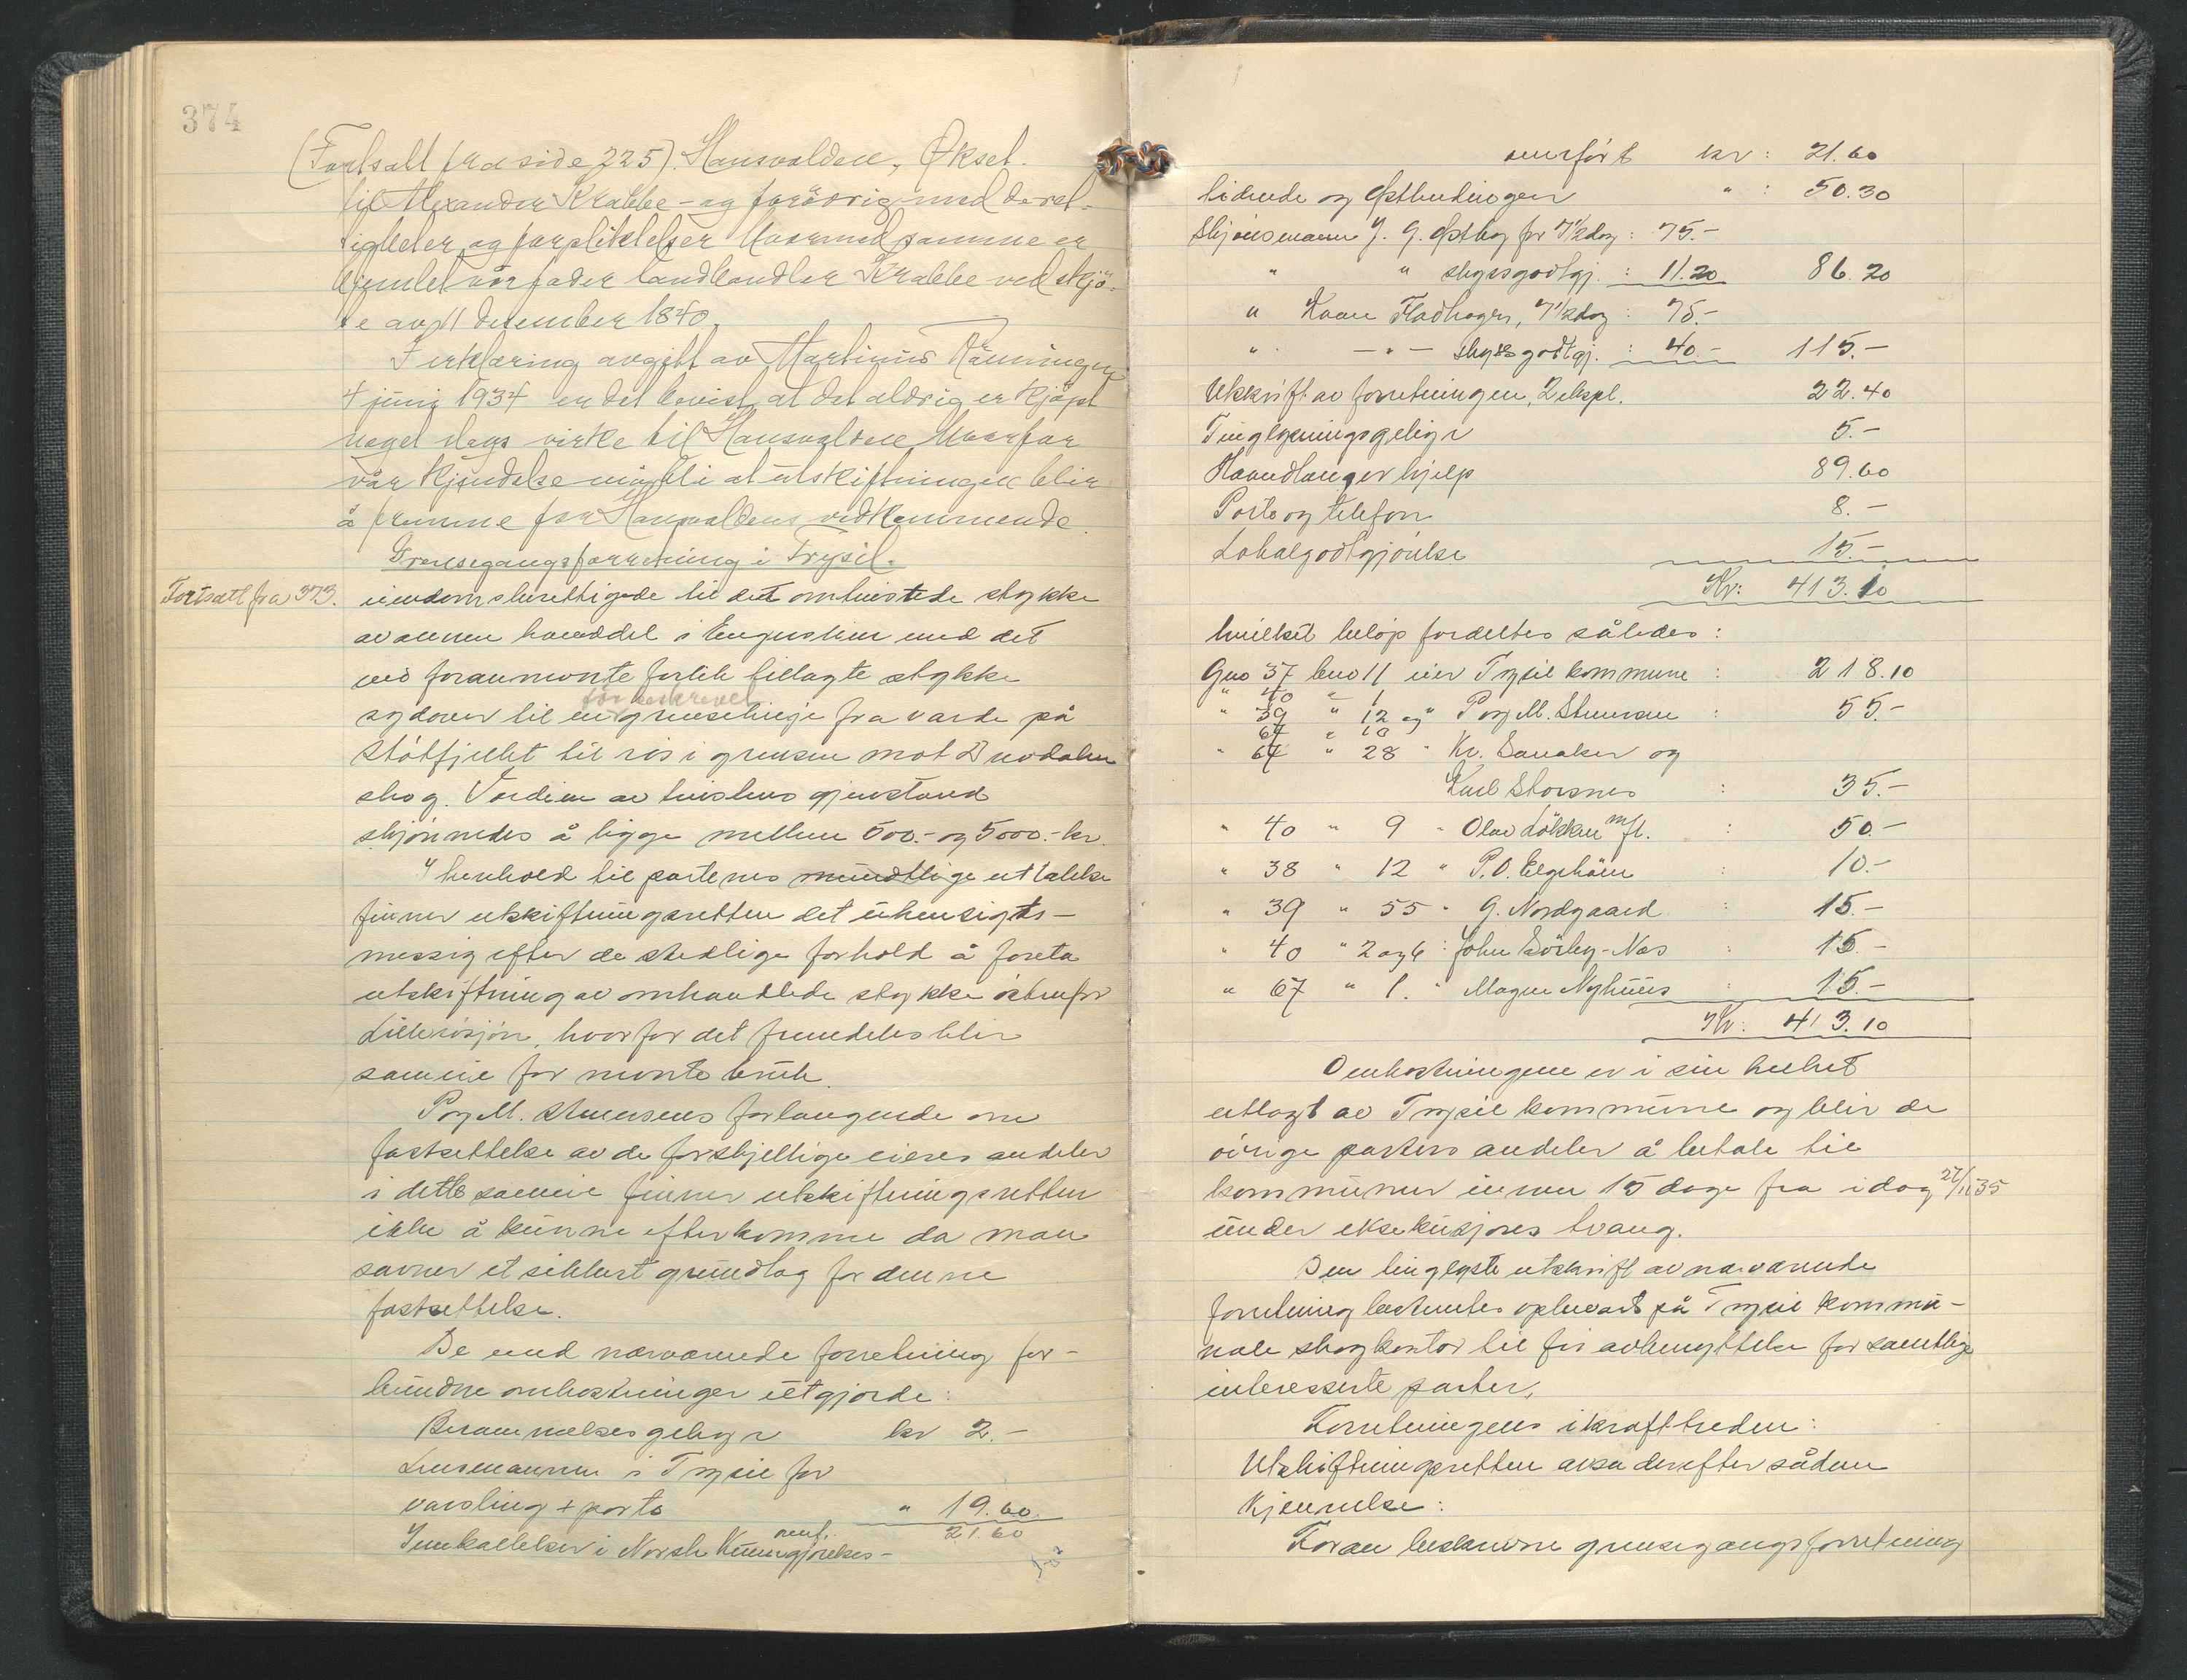 374
(Fortsatt fra side 225). Hansvolden, Økset.
til Alexander Krabbe - og forøvrig med de ret-
tigheter og forpliktelser hvormed samme er
hjemlet vår fader landhandler Krabbe ved skjö-
te av 11 desember 1840.
I erklæring avgitt av Martinus Rönningen
4 juni 1934 er det bevist at det aldrig er kjöpt
noget slags virke til Hansvolden hvorfor
vår kjendelse må bli at utskiftningen blir
å fremme for Hansvoldens vedkommende.
Grensegangsforretning i Trysil.
Fortsatt fra 373.
eiendomsberettigede til det omtvistede stykke
av annen havnedel i Engerslien med det
ved forannevnte forlik tillagte stykke
før beskrevet
sydover til en grenselinje fra varde på
Stötfjellet til rös i grensen mot Drevdalen
skog. Verdien av tvistens gjenstand
skjönnedes å ligge mellem 500.- og 5000.- kr.
I henhold til partenes mundtlige uttalelse
finner utskiftningsretten det uhensigts-
messig efter de stedlige forhold å foreta
utskiftning av omhandlede stykke östenfor
Lillerösjön, hvorfor det fremdeles blir
sameie for nevnte bruk.
P og M. Stenersens forlangende om
fastsettelse av de forskjellige eieres andeler
i dette sameie finner utskiftningsretten
ikke å kunne efterkomme da man
savner et sikkert grundlag for denne
fastsettelse.
De med nærværende forretning for-
bundne omkostninger utgjorde:
Berammelsesgebyr kr 2.-
Lensmannen i Trysil for
varsling + porto " 19.60.
omf. 21.60
Innkallelser i Norsk Kunngjörelses-
overfört kr: 21.60
tidende og Östlendingen " : 50.30
Skjönsmann J. G. Östby for 7½ dag : 75.-
" " skyssgodtgj. : 11.20 86.20
" Kaare Fladhagen, 7½ dag : 75.-
" - " - skyssgodtgj. : 40.- 115.-
Utskrift av forretningen, 2 ekspl. 22.40
Tinglysningsgebyr 5.-
Haandlangerhjelp 89.60
Porto og telefon 8.-
Lokalgodtgjörelse 15.-
Kr: 413.10
hvilket belöp fordeltes således:
Gno 37 bno 11 eier Trysil kommune : 218.10
" 40 " 1
" 39 " 12 og " P og M. Stenersen : 55.-
67 " 10
" 67 " 28 " Kr. Sanaker og
Karl Storsnes : 35.-
" 40 " 9 " Olav Lökken m fl. : 50.-
" 38 " 12 " P. O. Elgshöen : 10.-
" 39 " 55 " G. Nordgaard : 15.-
" 40 " 2 og 6 : John Sörby-Næs : 15.-
" 67 " 1. " Magne Nyhuus : 15.-
Kr: 413.10
Omkostningene er i sin helhet
utlagt av Trysil kommune og blir de
övrige parters andeler å betale til
kommunen innen 15 dage fra idag 27/11 35
under eksekusjons tvang.
Den tinglyste utskrift av nærværende
forretning bestemtes opbevart på Trysil kommu-
nale skogkontor til fri avbenyttelse for samtlige
interesserte parter.
Forretningens ikrafttreden:
Utskiftningsretten avsa derefter sådan
Kjennelse:
Foran beskrevne grensegangsforretning